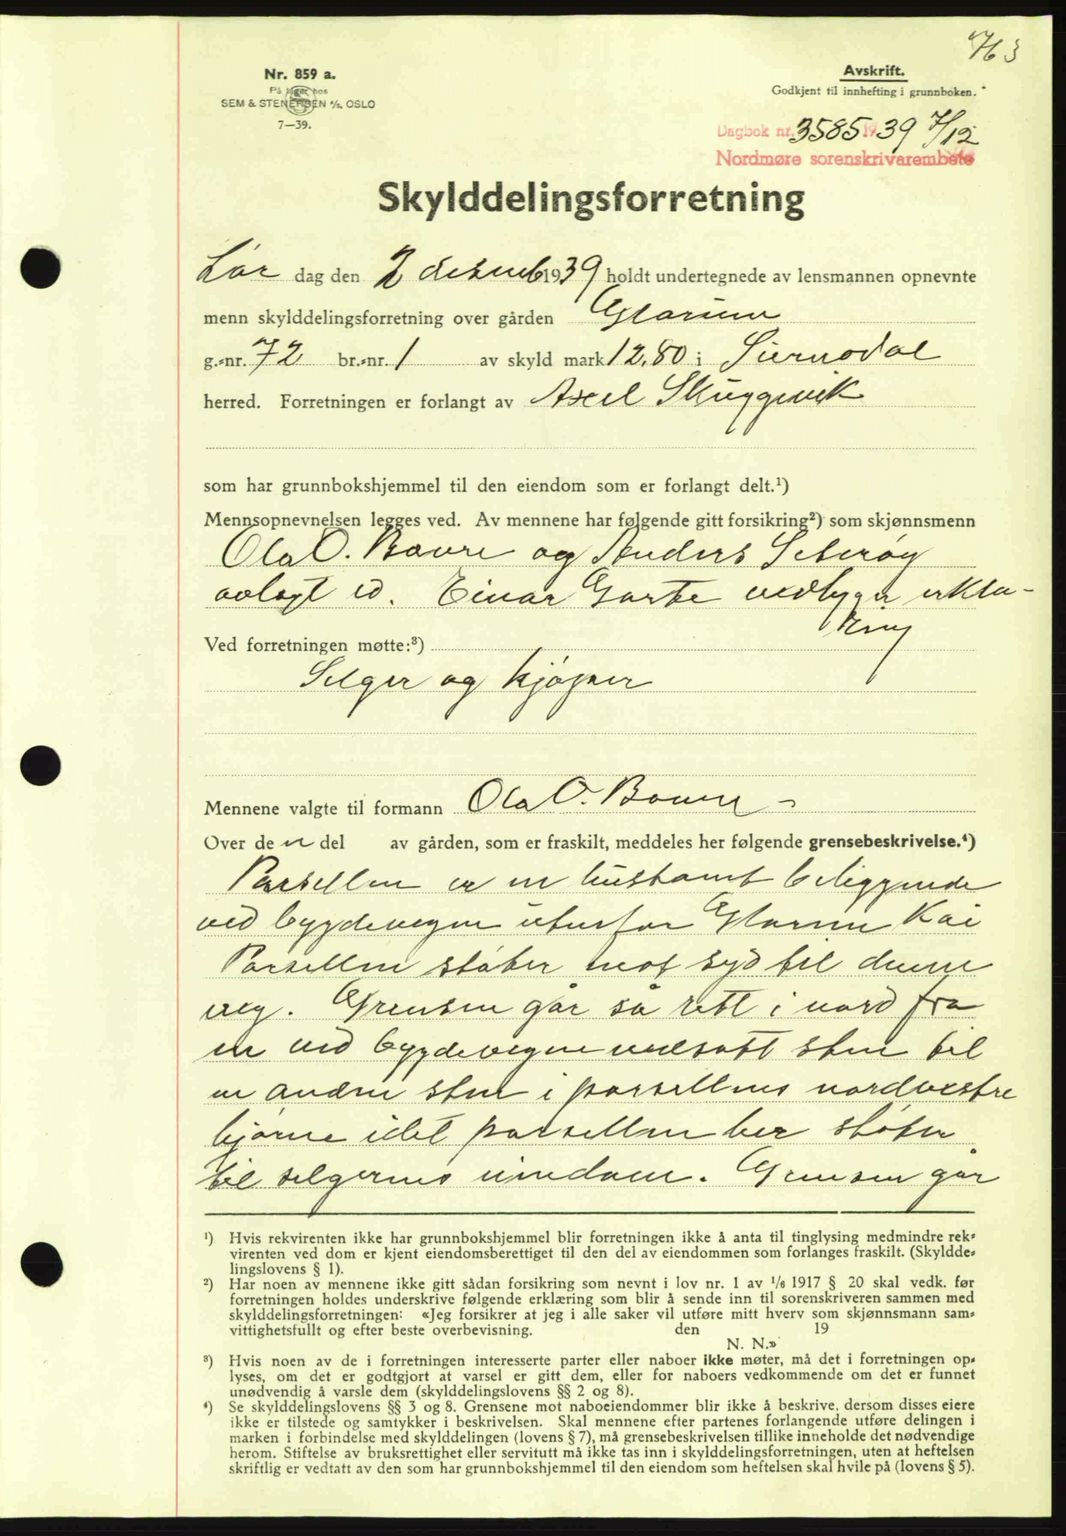 763
Nr. 859 a.
På lager hos
SEM & STENERSEN A/S, OSLO
7—39.
Avskrift.
Godkjent til innhefting i grunnboken.
Dagbok nr. 3585 1939 7/12
Nordmøre sorenskrivarembete
Skylddelingsforretning
Lør dag den 2 desemb 1939 holdt undertegnede av lensmannen opnevnte
menn skylddelingsforretning over gården Glærum
g.-nr. 72 br.-nr. 1 av skyld mark 12,80 i Surnadal
herred. Forretningen er forlangt av Axel Skuggevik
som har grunnbokshjemmel til den eiendom som er forlangt delt.¹)
Mennsopnevnelsen legges ved. Av mennene har følgende gitt forsikring²) som skjønnsmenn
Ola O. Bævre og Anders Seterøy
avlagt ed. Einar Garte vedlyger erklæ-
ring
Ved forretningen møtte:³)
Selger og kjøper
Mennene valgte til formann Ola O. Bævre -
Over de n del av gården, som er fraskilt, meddeles her følgende grensebeskrivelse.⁴)
Parsellen er en hustomt beliggende
ved bygdevegen utenfor Glærum Kai
Parsellen støter mot syd til denne
veg. Grensen går så rett i nord fra
en ved bygdevegen nedsatt sten til
en anden sten i parsellens nordvestre
hjørne idet parsellen her støter
til selgernes eiendom. Grensen går
¹) Hvis rekvirenten ikke har grunnbokshjemmel blir forretningen ikke å anta til tinglysing medmindre rek-
virenten ved dom er kjent eiendomsberettiget til den del av eiendommen som forlanges fraskilt. (Skyldde-
lingslovens § 1).
²) Har noen av mennene ikke gitt sådan forsikring som nevnt i lov nr. 1 av 1/6 1917 § 20 skal vedk. før
forretningen holdes underskrive følgende erklæring som blir å sende inn til sorenskriveren sammen med
skylddelingsforretningen: «Jeg forsikrer at jeg i alle saker vil utføre mitt hverv som skjønnsmann sam-
vittighetsfullt og efter beste overbevisning. den 19
N. N.»
³) Hvis noen av de i forretningen interesserte parter eller naboer ikke møter, må det i forretningen op-
lyses, om det er godtgjort at varsel er gitt dem, eller for naboers vedkommende om det er funnet
unødvendig å varsle dem (skylddelingslovens §§ 2 og 8).
⁴) Se skylddelingslovens §§ 3 og 8. Grensene mot naboeiendommer blir ikke å beskrive, dersom disses eiere
ikke er tilstede og samtykker i beskrivelsen. Skal mennene efter partenes forlangende utføre delingen i
marken i forbindelse med skylddelingen (lovens § 7), må grensebeskrivelsen tillike inneholde det nødvendige
herom. Stiftelse av bruksrettighet eller servitutt må ikke tas inn i skylddelingsforretningen, uten at heftelsen
skriftlig er vedtatt av den som har grunnbokshjemmel til den eiendom som heftelsen skal hvile på (lovens § 5).